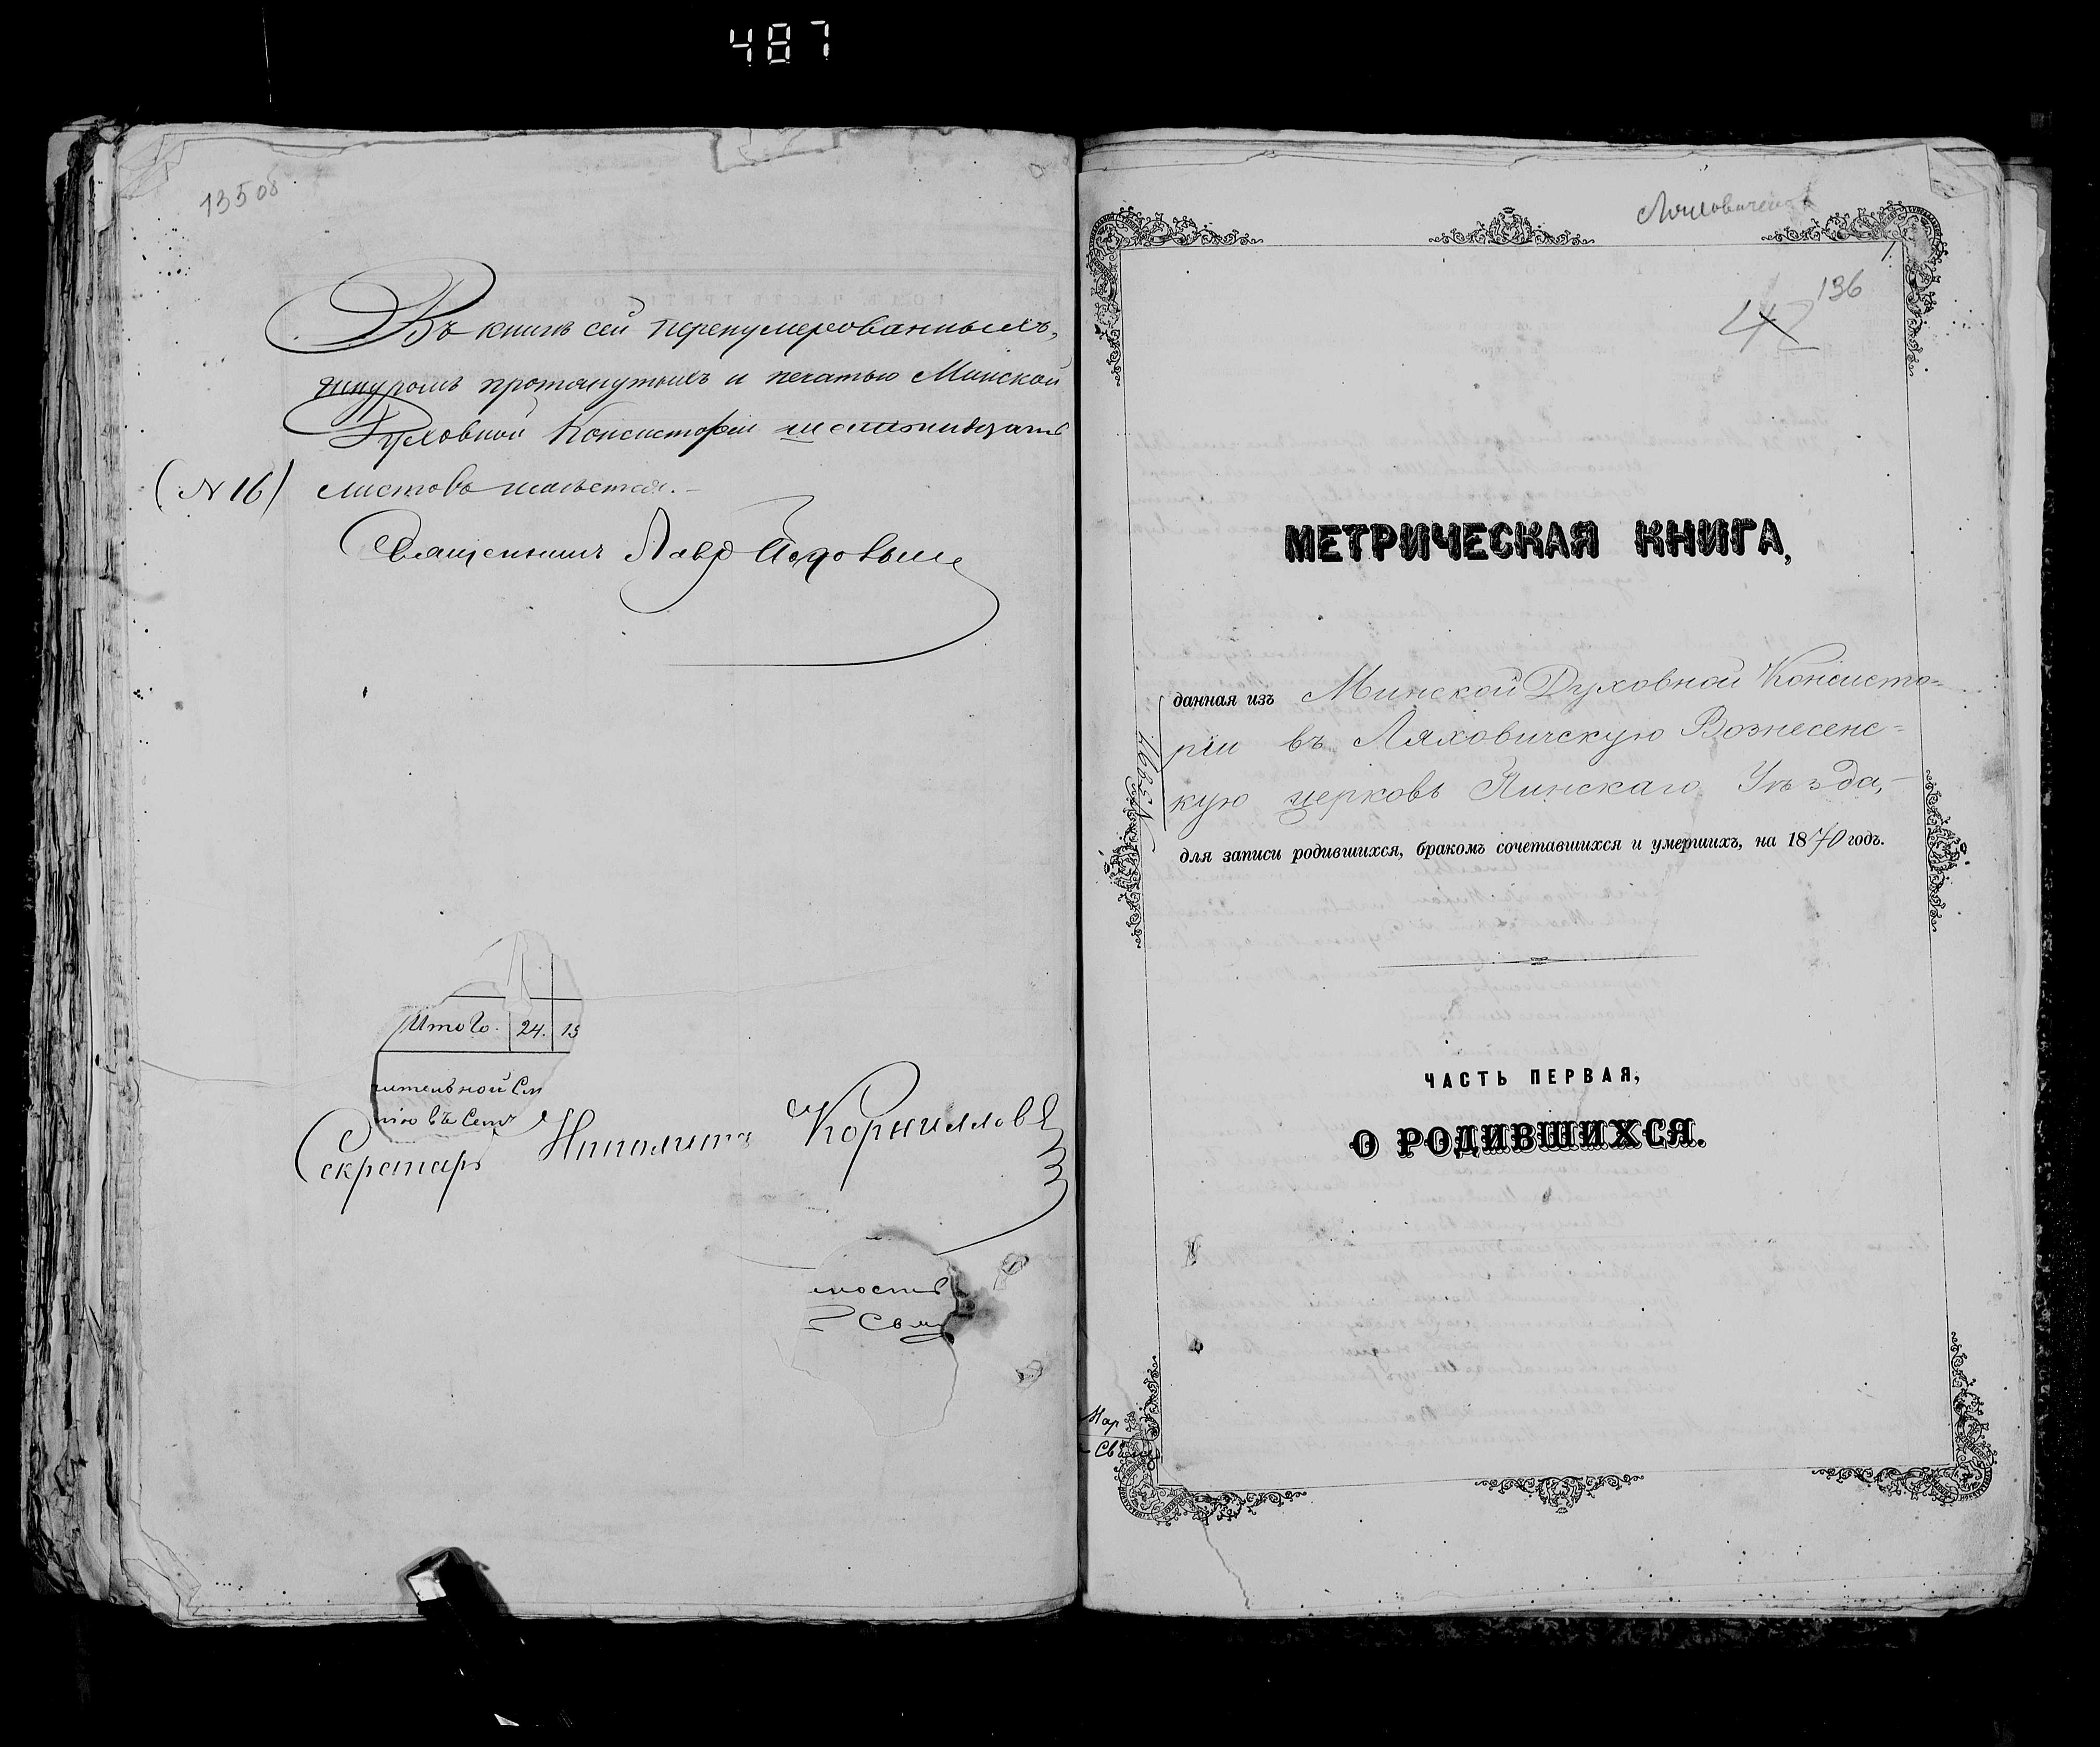 487
13508
Въ книгѣ сей перенумерованныхъ,
шнуромъ протянутыхъ и печатью Минской
Духовной Консисторіи
(N 16) листовъ
Священникъ Лавр
Итого. 24. 13
ительной
Секретарь Ипполитъ Корниловъ
ность
136
42
МЕТРИЧЕСКАЯ КНИГА,
данная изъ Минской Духовной Консисто-
ріи въ Ляховичскую Вознесенс-
кую церковь Пинскаго Уѣзда,
для записи родившихся, бракомъ сочетавшихся и умершихъ, на 1870 годъ.
ЧАСТЬ ПЕРВАЯ,
О РОДИВШИХСЯ.
Мар
Свящ